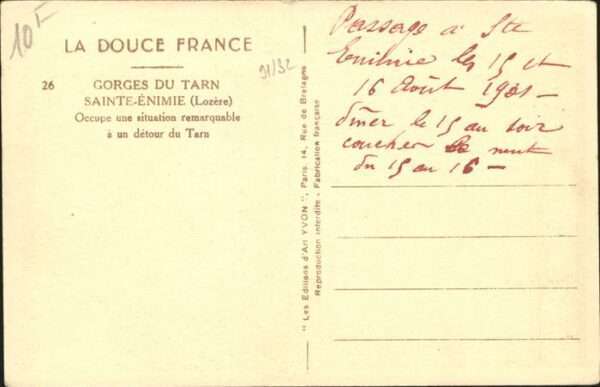 10F
LA DOUCE FRANCE
31/32
26 GORGES DU TARN
SAINTE-ÉNIMIE (Lozère)
Occupe une situation remarquable
à un détour du Tarn
" Les Editions d'Art YVON ", Paris, 14, Rue de Bretagne
Reproduction interdite - Fabrication française
Passage à Ste
Enimie les 15 et
16 Août
dîner le 15 au soir
coucher nuit
du 15 au 16 —